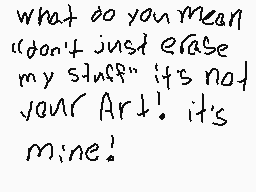 what do you mean
"don't just erase
my stuff" it's not
your Art! it's
mine!